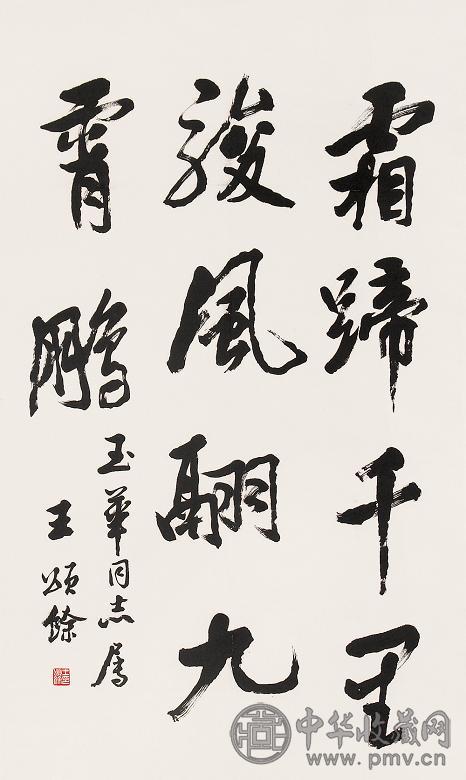 霜蹄千里
駿風翮九
霄鵬
玉華同志屬
王頌餘
中华收藏网
www.pmv.cn